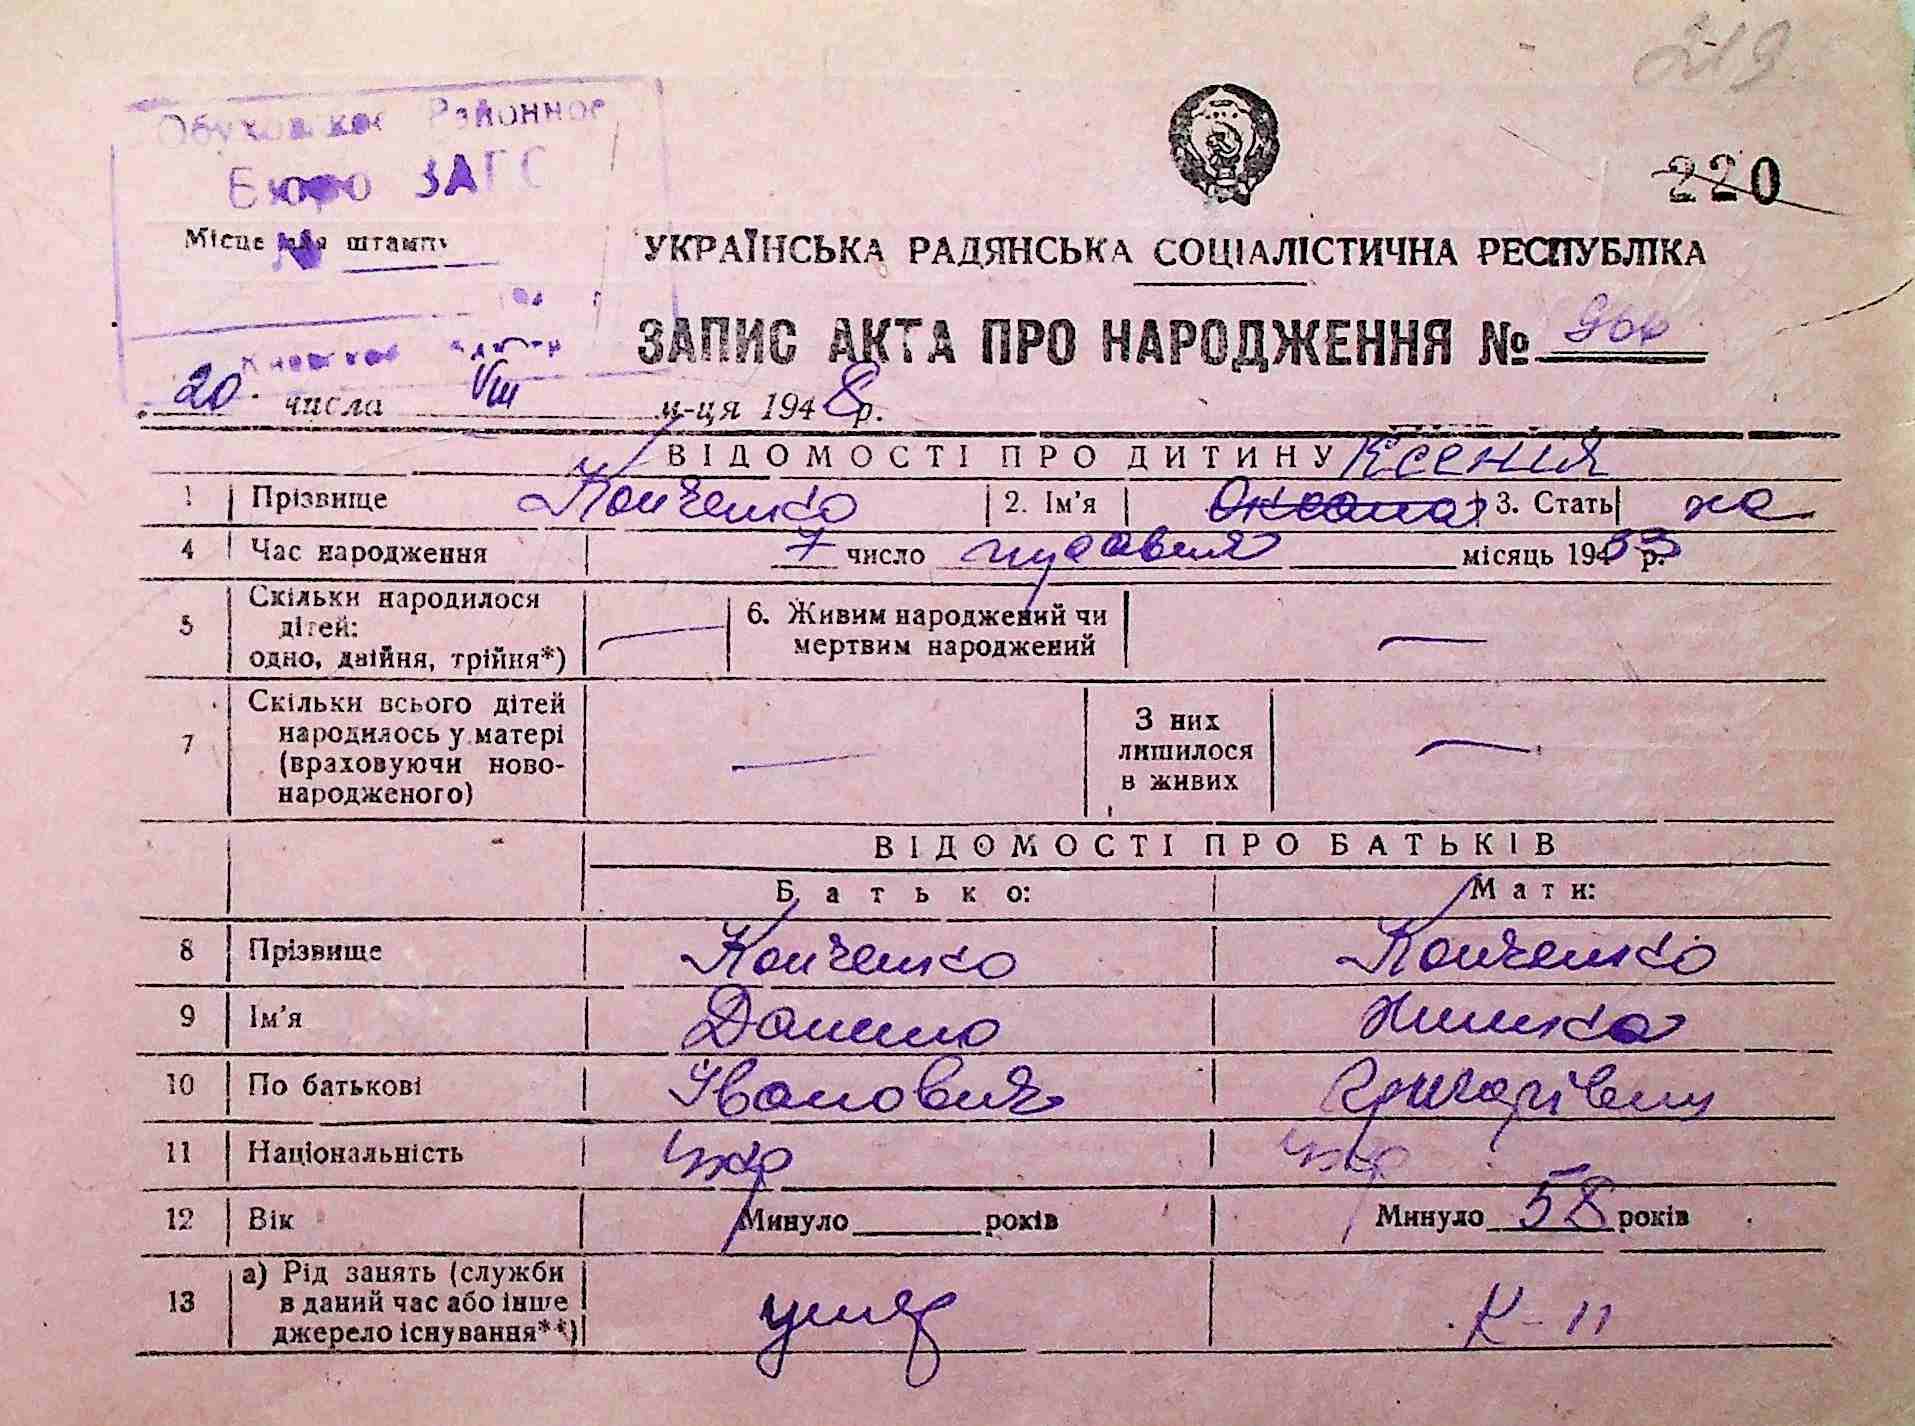 219
220
Обуховское Районное
Бюро ЗАГС
Місце для штампу
УКРАЇНСЬКА РАДЯНСЬКА СОЦІАЛІСТИЧНА РЕСПУБЛІКА
ЗАПИС АКТА ПРО НАРОДЖЕННЯ № 960
20 числа VIII м-ця 1948 р.
ВІДОМОСТІ ПРО ДИТИНУ Ксенія
1 Прізвище Конченко 2. Ім'я Оксана 3. Стать жо
4 Час народження 7 число травня місяць 1933 р.
5 Скільки народилося дітей: одно, двійня, трійня*) — 6. Живим народжений чи мертвим народжений —
7 Скільки всього дітей народилось у матері (враховуючи новонародженого) — З них лишилося в живих —
ВІДОМОСТІ ПРО БАТЬКІВ
Батько: Мати:
8 Прізвище Конченко Конченко
9 Ім'я Данило Химка
10 По батькові Іванович Григорівни
11 Національність укр укр
12 Вік Минуло років Минуло 58 років
13 а) Рід занять (служби в даний час або інше джерело існування**) умер К-п